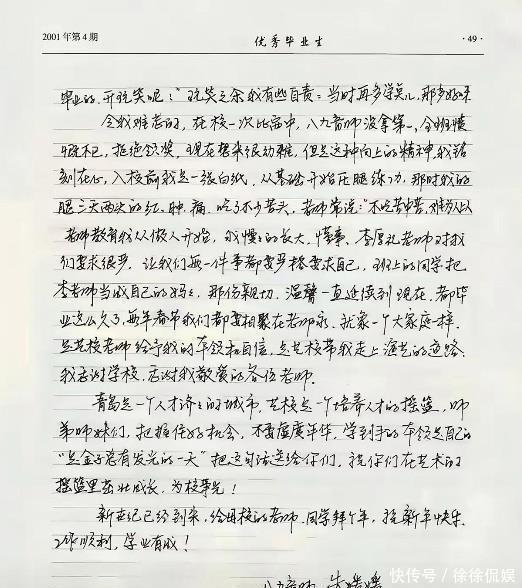 2001年第4期
优秀毕业生
·49·
毕业的,开玩笑呢;"玩笑之余我有些自责:当时再多学点儿,那多好呀
令我难忘的,在校一次比赛中,八九音师没拿第一,全班愤
慨不已,拒绝领奖,现在想来很幼稚,但是这种向上的精神,我铭
刻在心,入校前我是一张白纸,从基础开始压腿练功,那时我的
腿三天两次的红、肿、痛,吃了不少苦头,老师常说:"不吃苦中苦,难为人上
老师教育我从做人开始,我慢慢的长大,懂事、李厚礼老师对我
们要求很严,让我们每一件事都要严格要求自己,班上的同学把
李老师当成自己的妈妈,那份亲切、温馨一直延续到现在,都毕
业这么久了,每年春节我们都要相聚在老师家,就象一个大家庭一样.
是艺校老师给予我的本领和自信,是艺校带我走上演艺的道路.
我感谢学校,感谢我敬爱的各位老师.
青岛是一个人才济济的城市,艺校是一个培养人才的摇篮,师
弟师妹们,把握住好机会,不要虚度年华,学到手的本领是自己的
"是金子总有发光的一天"把这句话送给你们,祝你们在艺术的
摇篮里茁壮成长,为校争光!
新世纪已经到来,给母校的老师.同学拜个年,祝新年快乐.
工作顺利,学业有成!
八九音师
快传号/徐徐侃娱